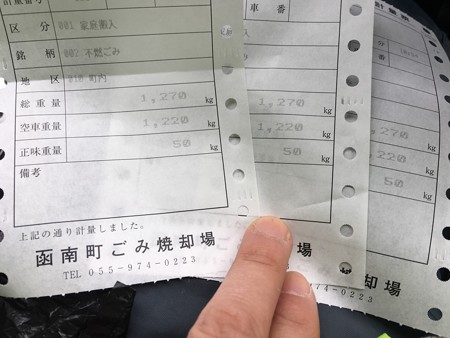 計量番号
区分 001 家庭搬入
銘柄 002 不燃ごみ
地区 010 町内
総重量 1,270 kg
空車重量 1,220 kg
正味重量 50 kg
備考
上記の通り計量しました。
函南町ごみ焼却場
TEL 055-974-0223
車番
1,270 kg
1,220 kg
50 kg
場
計量票
270 kg
220 kg
50 kg
却場
974-0223